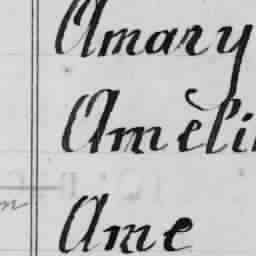 Amary
Amèli
Ame